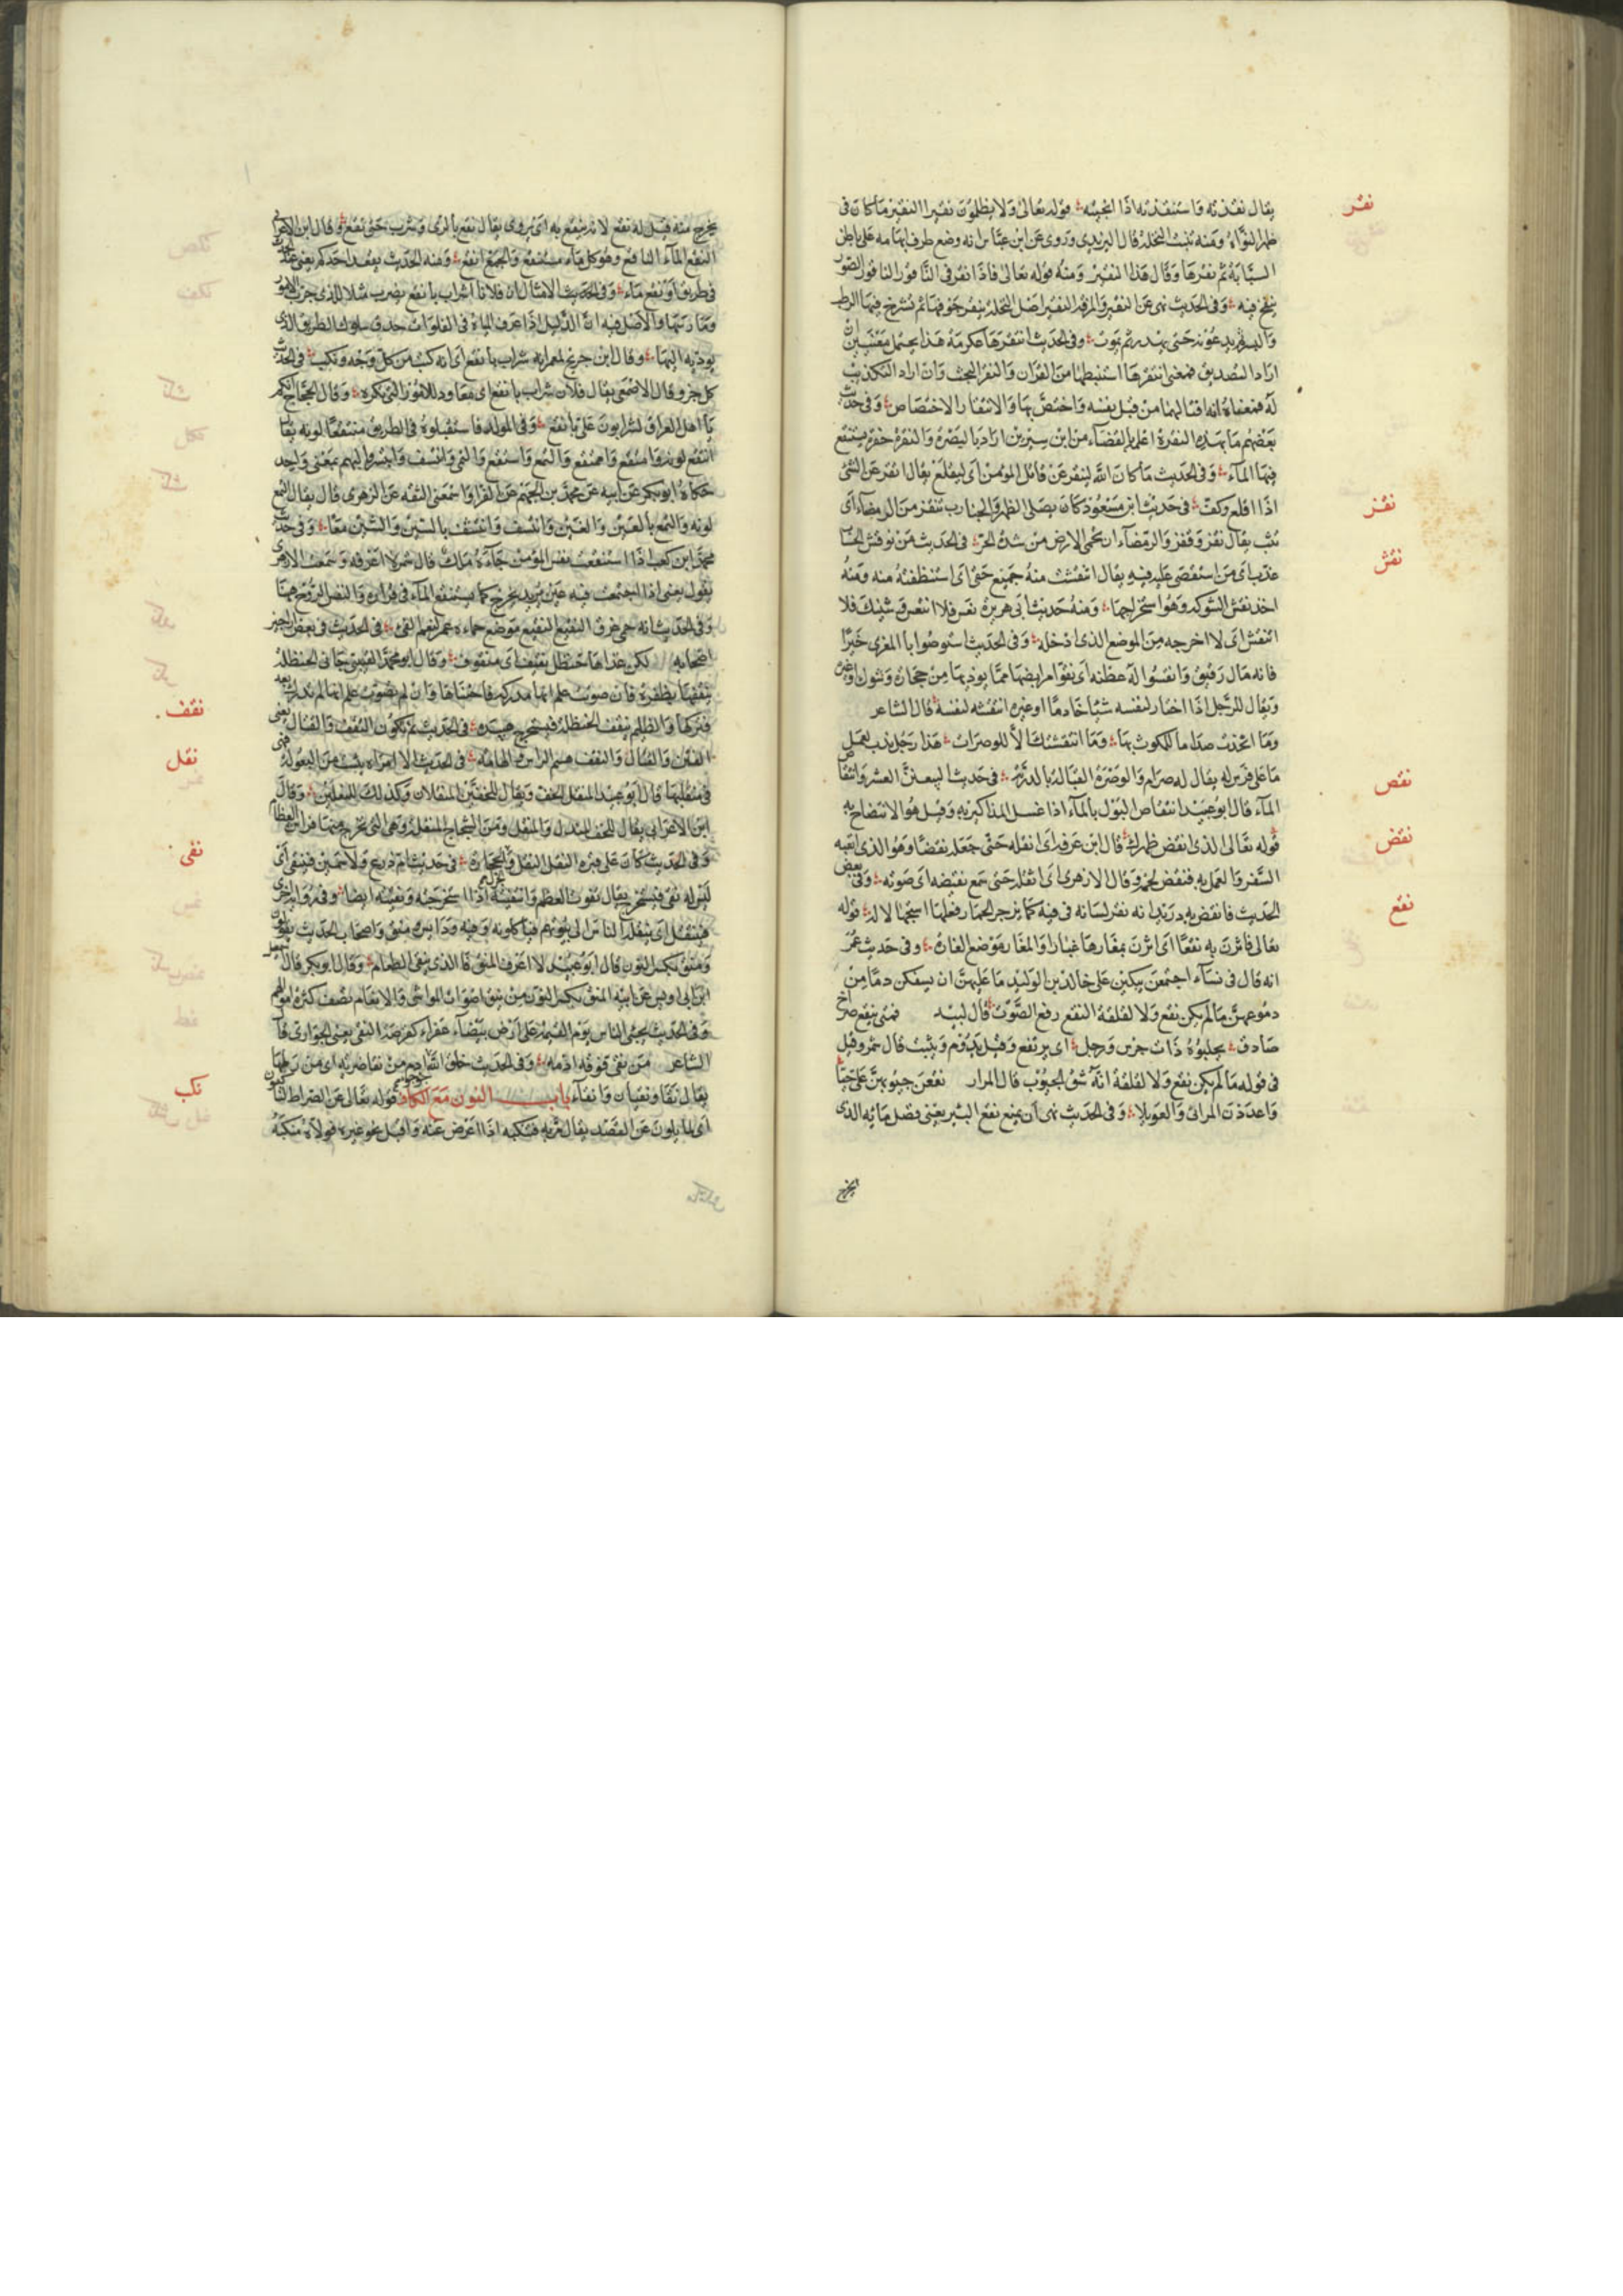 نقر
يقال نقذته واستنقذته اذا انجيته قوله تعالى ولا يظلمون نقيرا النقير ما كان في
ظهر النواة ومنه تنبت النخلة قال اليزيدي وروى عن ابن عباس انه وضع طرف ابهامه على باطن
السبابة ثم نقرها وقال هذا النقير ومنه قوله تعالى فاذا نقر في الناقور الناقور الصور
ينفخ فيه وفي الحديث نهى عن النقير والمزفت النقير اصل النخلة ينقر جوفها ثم يشدخ فيها الرطب
والبسر ثم يدعونه حتى يهدر ثم يموت وفي الحديث انتقرها عكرمة هذا يحتمل معنيين ان
اراد التصديق فمعنى انتقرها استنبطها من القران والنقر البحث وان اراد التكذيب
له فمعناه انه اقتالها من قبل نفسه واختص بها والانتقار الاختصاص وفي حديث
بعضهم ما بهذه النقرة اعلم بالقضاء من ابن سيرين اراد بالبصرة والنقرة حفرة يستنقع
فيها الماء وفي الحديث ما كان الله لينقر عن قاتل المؤمن اى ليقلع يقال انقر عن الشئ
نقز
اذا اقلع وكف في حديث ابن مسعود كان يصلى الظهر والجنادب تنقز من الرمضاء اى
نقش
تثب يقال نقز وقفز والرمضاء ان تحمى الارض من شدة الحر في الحديث من نوقش الحساب
عذب اى من استقصى عليه فيه يقال انتقشت منه جميع حتى اى استنظفته منه ومنه
اخذ نقش الشوكة وهو استخراجها ومنه حديث ابى هريرة تعس فلا انتعش وشيك فلا
انتقش اى لا اخرجه من الموضع الذى ادخله وفي الحديث استوصوا بالمعزى خيرا
فانه مال رقيق وانقشوا له عطنه اى نقوا مرابضها مما يوذيها من حجارة وشوك اوغيره
ويقال للرجل اذا اختار لنفسه شيئا خادما او غيره انتقشه لنفسه قال الشاعر
وما اتخذت صداما للمكوث بها وما انتقشتك الا للوصرات هذا رجل ندب لعمل
نقص
ما على فرس له يقال له صدام والوصرة القبالة بالدرية في حديث السبعين العشر وانتقاص
الماء قال ابو عبيد انتقاص البول بالماء اذا غسل المذاكير به وقيل هو الانتضاح به
نقض
قوله تعالى الذى انقض ظهرك قال ابن عرفة اى اثقله حتى جعله نقضا وهو الذى اتعبه
السفر والعمل به فنقض لحمه وقال الازهرى اى اثقله حتى سمع نقيضه اى صوته وفي بعض
نقع
الحديث فانقض به دريد انه نقر لسانه في فيه كما يزجر الحمار فعلها استجهالا له قوله
تعالى فاثرن به نقعا اى اثرن بمغارها غبارا والمغار موضع الغارة وفي حديث عمر
انه قال في نساء اجتمعن يبكين على خالد بن الوليد ما عليهن ان يسفكن دما من
دموعهن ما لم يكن نقع ولا لقلقة النقع رفع الصوت قال لبيد فمتى ينقع صراخ
صادق يحلبوه ذات جرس وزجل اى يرتفع وقيل يدوم ويثبت قال شمر وقيل
في قوله ما لم يكن نقع ولا لقلقة انه شق الجيوب قال المرار نقعن جيوبهن على حيا
واعددن المراثى والعويلا وفي الحديث نهى ان يمنع نقع البئر يعنى فضل مائه الذى
يخرج
يخرج منه قيل له نقع لانه ينقع به اى يروى يقال نقع بالرى وشرب حتى نقع وقال ابن الاعرابى
النقع الماء الناقع وهو كل ماء مستنقع والجمع انقع ومنه الحديث يقعد احدكم يعنى عند الحدث
في طريق او نقع ماء وفي الحديث الامثال ان فلانا لشراب بانقع يضرب مثلا للذى جرب الامور
ومارسها والاصل فيه ان الدليل اذا عرف المياه في الفلوات حذق سلوك الطريق الذى
يوديه اليها وقال ابن جريج لمعمر انه شراب بانقع اى انه كتب من كل وجه وكتب في الحديث
كل جزو قال الاصمعى يقال فلان شراب بانقع اى معاود للامور التى تكره وقال الحجاج انكم
يا اهل العراق لشرابون على بانقع وفي المولد فاستقبلوه في الطريق منتقعا لونه يقال
انتقع لونه وامتقع واهتقع والتمع واستقع والتمى وانتسف وابتسر والتهم بمعنى واحد
حكاه ابو بكر عن ابيه عن محمد بن الجهم عن الفراء اسمعنى الثقه عن الزهرى قال يقال التمع
لونه والتمغ بالعين والغين وانتسف وانتشف بالسين والشين معا وفي حديث
محمد ابن كعب اذا استنقعت نفس المؤمن جاءه ملك قال شمر لا اعرفه وسمعت الازهرى
يقول يعنى اذا اجتمعت فيه حين يريد يخرج كما يستنقع الماء في قراره والنفس الروح هاهنا
وفي الحديث انه حمى غرز النقيع النقيع موضع حماه عمر لنعم الفئ في الحديث في بعض اراجيز
نقف
اصحابه لكن غذاها حنظل نقيف اى منقوف وقال ابو محمد القتيبى جانى الحنظلة
ينقفها بظفره فان صوتت علم انها مدركة فاجتناها وان لم تصوت علم انها لم تدرك بعد
فتركها والظليم ينقف الحنظلة فيستخرج هبيده في الحديث ثم يكون النقف والقتال يعنى
نقل
الفتن والقتال والنقف هشم الراس والهامة في الحديث الا امراة يئست من البعولة فهى
في منقليها قال ابو عبيد المنقل الخف ويقال للخفين المنقلان وكذلك للنعلين وقال
ابن الاعرابى يقال للخف المندل والمنقل ومن الشجاج المنقلة وهى التى يخرج منها فراش العظام
نقى
وفي الحديث كان على قبره النقل النقل الحجارة في حديث ام زرع ولا سمين فينتقى اى
ليس له نقى فيستخرج يقال نقوت العظم وانتقيته اذا استخرجته ونقيته ايضا وفي رواية اخرى
فينتقل اى ينقله الناس الى بيوتهم فيأكلونه وفيه ودائس ومنق واصحاب الحديث يقولون
ومنق بكسر النون قال ابو عبيد لا اعرف المنق قال الذى ينقى الطعام وقال ابو بكر قال
ابن ابى اويس عن ابيه المنق بكسر النون من نقيق اصوات المواشى والانعام تصف كثرة اموالهم
وفي الحديث يحشر الناس يوم القيمة على ارض بيضاء عفراء كقرصة النقى يعنى الحوارى قال
الشاعر من نقى فوقه ادمه وفي الحديث خلق الله ادم من نقا ضرية اى من رملها
نكب
يقال نقا ونقيان وانقاء باب النون مع الكاف قوله تعالى عن الصراط لناكبون
اى لمايلون عن القصد يقال نكب به فنكبه اذا اعرض عنه واقبل نحو غيره فولاه منكبه